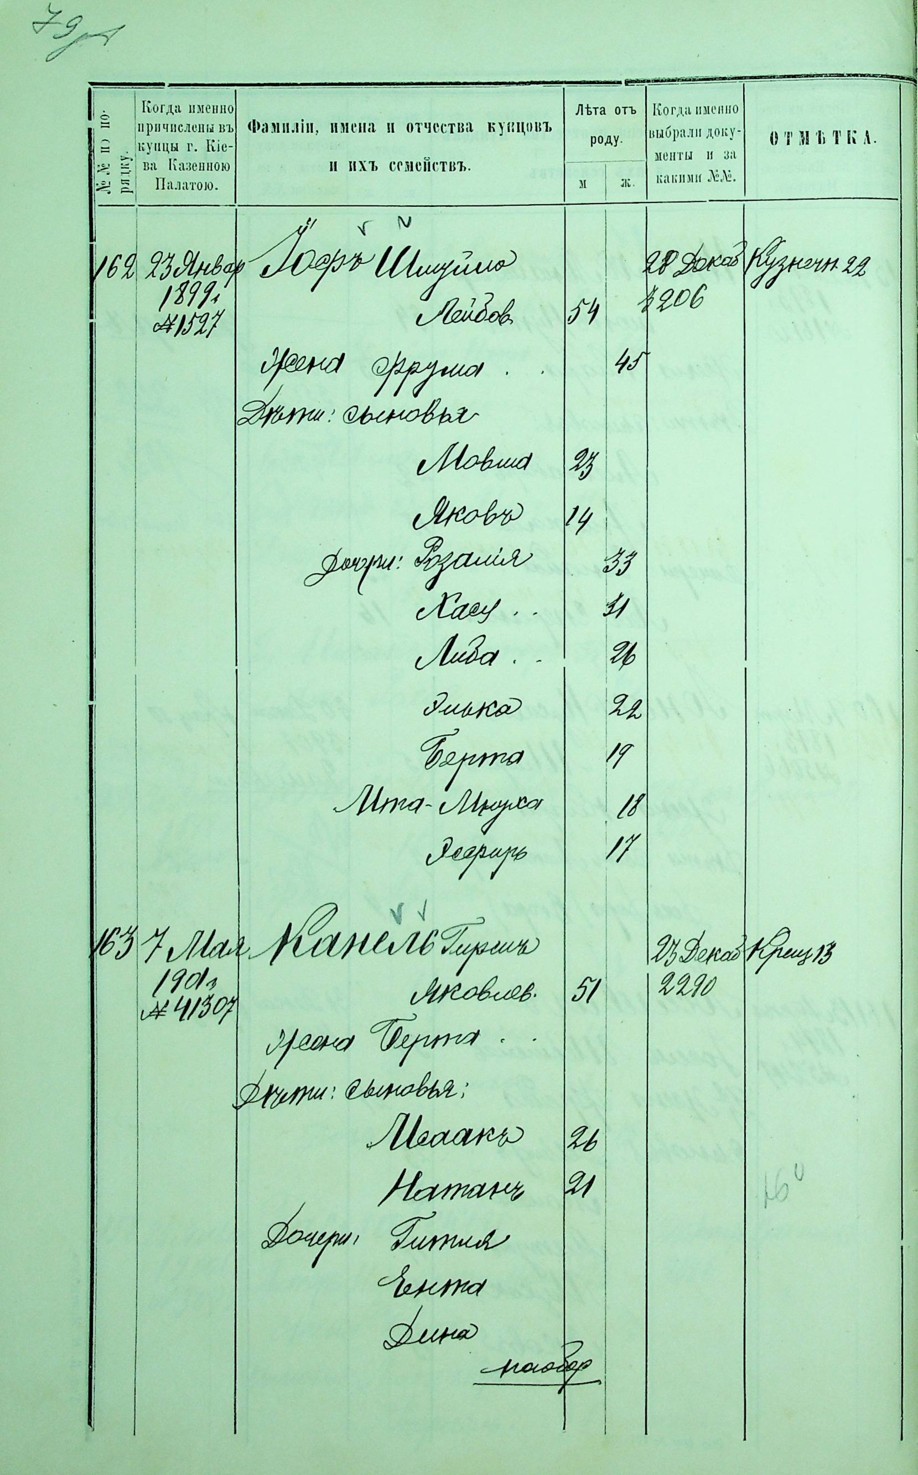 79
№№ по по-
рядку.
Когда именно
причислены въ
купцы г. Кіе-
ва Казенною
Палатою.
Фамиліи, имена и отчества купцовъ
и ихъ семействъ.
Лѣта отъ
роду.
м
ж.
Когда именно
выбрали доку-
менты и за
какими №№.
ОТМѢТКА.
162 23 Январ Шмуйло 28 Декаб Кузнечн. 22
1899 г
№ 1527
Лейбов. 54
Жена Фрума . . 45
Дѣти: сыновья
Мовша 23
Яковъ 14
Дочери: Розалія 33
Хася . . 31
Либа . . 26
Элька 22
Берта 19
Ита-Мнуха 18
Эсфирь 17
163 7 Мая Канель Гиршъ 23 Декаб Крещ 13
1901 г
№ 41307
Яковлев. 51 2290
Жена Берта . .
Дѣти: сыновья:
Исаакъ 26
Натанъ 21
Дочери: Гитля
Ента
Дина
наобор